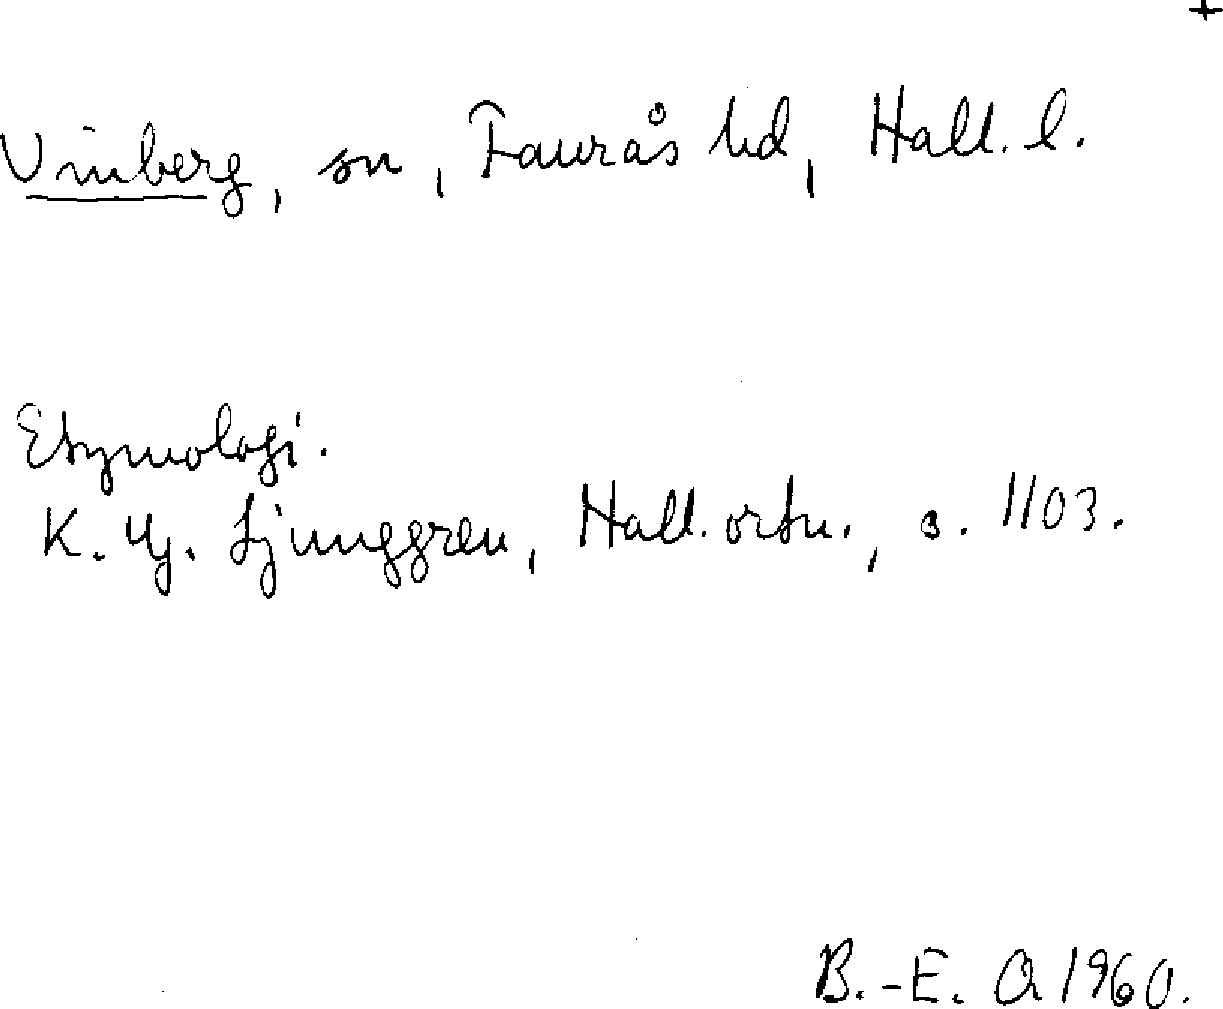 +
Vinberg, sn, Faurås hd, Hall. l.
Etymologi.
K. G. Ljunggren, Hall. ortn., s. 1103.
B.-E. O 1960.